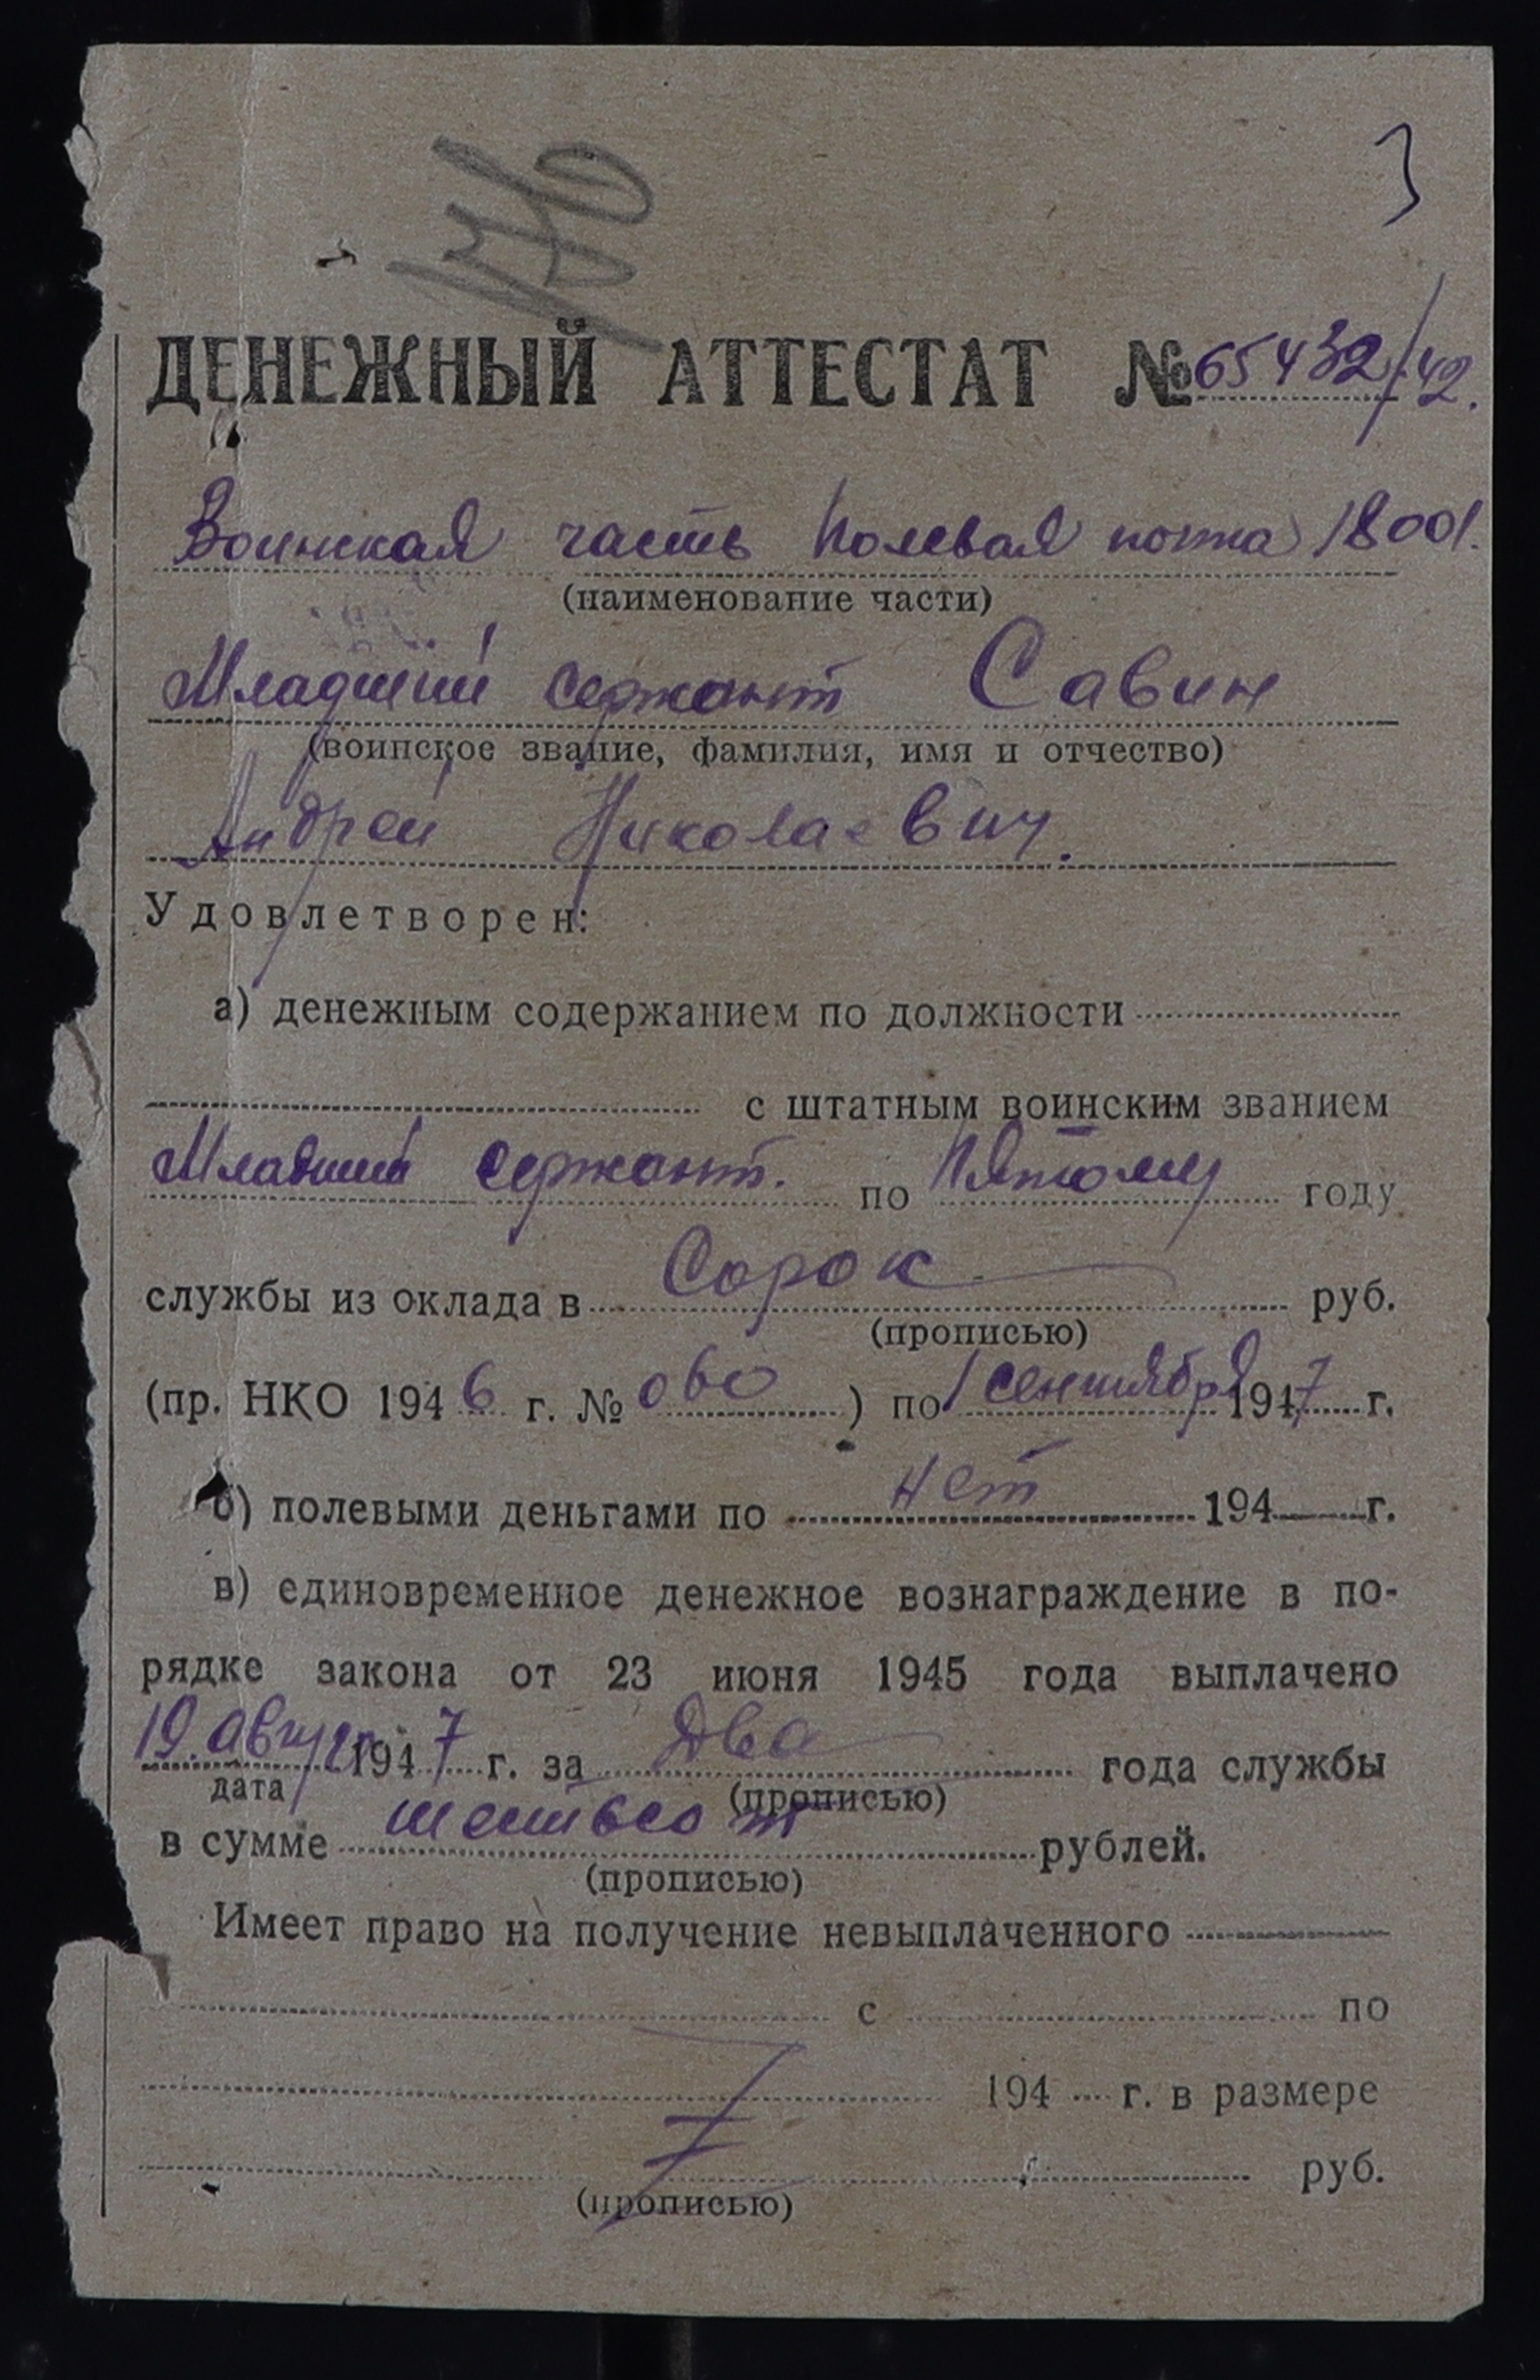 ДЕНЕЖНЫЙ АТТЕСТАТ № 65432/42.
Воинская часть Полевая почта 18001.
(наименование части)
Младший сержант Савин
(воинское звание, фамилия, имя и отчество)
Андрей Николаевич.
Удовлетворен:
а) денежным содержанием по должности
с штатным воинским званием
Младший сержант. по Пятому году
службы из оклада в Сорок руб.
(прописью)
(пр. НКО 1946 г. № 060) по 1 сентября 1947 г.
б) полевыми деньгами по нет 194 г.
в) единовременное денежное вознаграждение в по-
рядке закона от 23 июня 1945 года выплачено
19 август 1947 г. за Два года службы
дата (прописью)
в сумме шестьсот рублей.
(прописью)
Имеет право на получение невыплаченного
с по
194 г. в размере
руб.
(прописью)